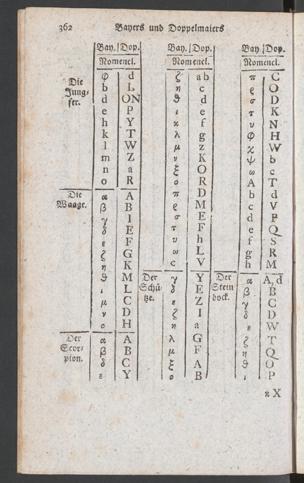 362 Bayers und Doppelmaiers
Bay. Dop. Bay. Dop. Bay. Dop.
Nomencl. Nomencl. Nomencl.
Die Jungfer.
φ d
b L
d ON
e P
h Y
k T
l W
m Z
n a
o R
Die Waage.
α A
β B
γ I
δ E
ε F
ζ G
η K
θ M
ι L
μ C
ν D
ο H
Der Scorpion.
α A
β B
δ C
ε Y
ζ ab
η c
θ d
ι e
κ f
λ g
μ z
ν K
ξ O
ο R
π D
ρ M
σ E
τ F
υ h
ω L
c V
Der Schütze.
γ Y
δ E
ε Z
ζ I
η a
λ G
μ F
ξ A
ο B
π C
ρ O
σ D
τ K
υ N
φ H
χ W
ψ b
ω c
A T
b d
c V
d P
e Q
f S
g R
h M
Der Steinbock.
α A, d
β B
γ C
δ D
ε W
ζ T
η Q
θ O
ι P
κ X